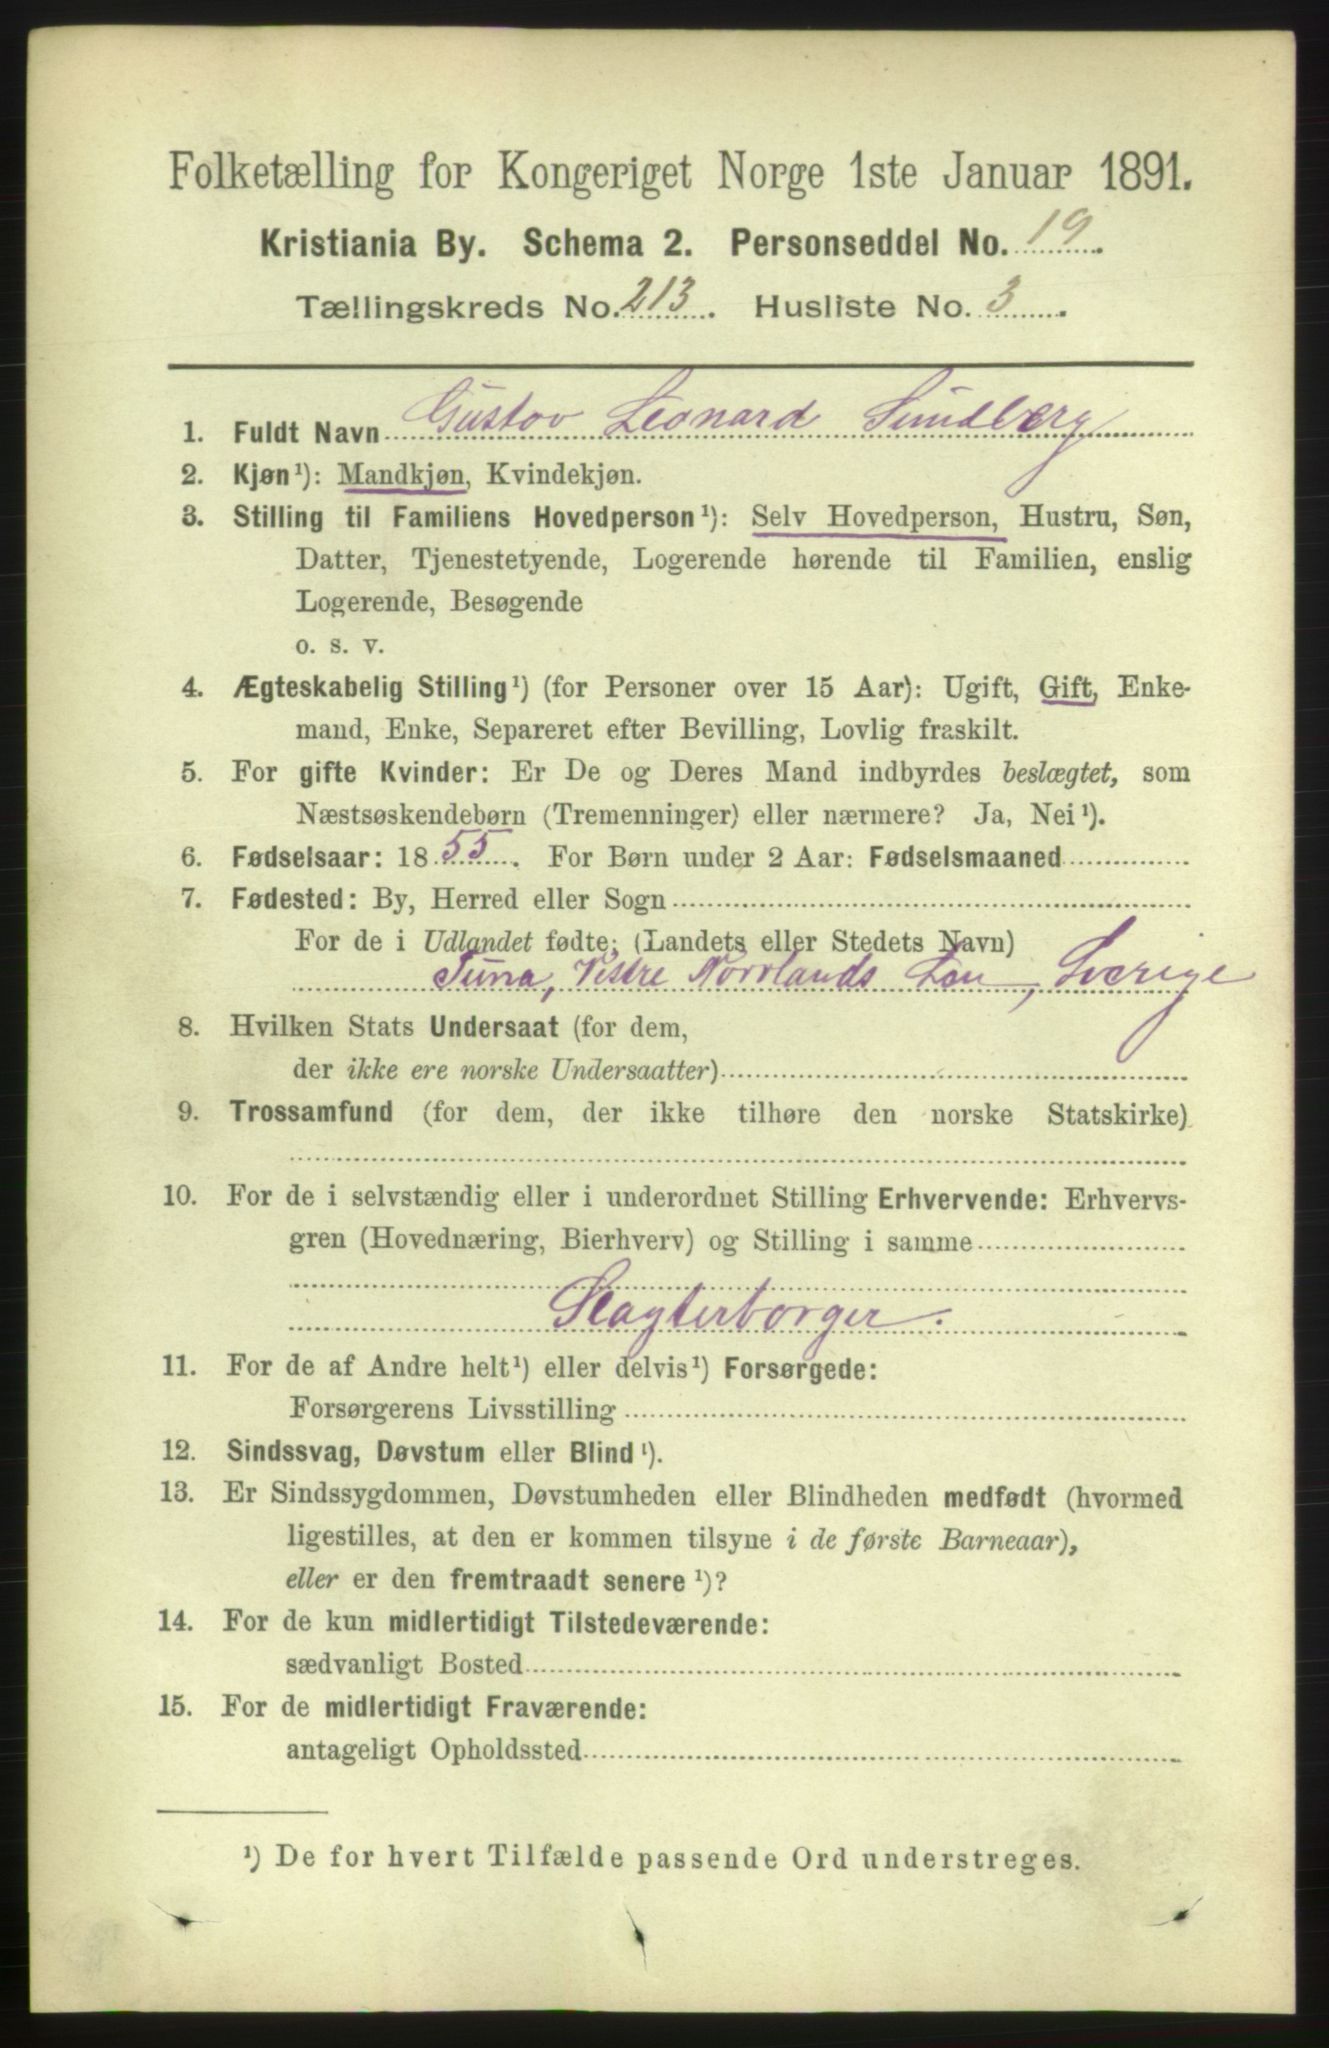 Folketælling for Kongeriget Norge 1ste Januar 1891.
Kristiania By. Schema 2. Personseddel No. 19.
Tællingskreds No. 213. Husliste No. 3.
1. Fuldt Navn Gustav Leonard Sundberg
2. Kjøn¹): Mandkjøn, Kvindekjøn.
3. Stilling til Familiens Hovedperson¹): Selv Hovedperson, Hustru, Søn,
Datter, Tjenestetyende, Logerende hørende til Familien, enslig
Logerende, Besøgende
o. s. v.
4. Ægteskabelig Stilling¹) (for Personer over 15 Aar): Ugift, Gift, Enke-
mand, Enke, Separeret efter Bevilling, Lovlig fraskilt.
5. For gifte Kvinder: Er De og Deres Mand indbyrdes beslægtet, som
Næstsøskendebørn (Tremenninger) eller nærmere? Ja, Nei¹).
6. Fødselsaar: 1855. For Børn under 2 Aar: Fødselsmaaned
7. Fødested: By, Herred eller Sogn
For de i Udlandet fødte: (Landets eller Stedets Navn)
Tuna, Vestre Norrlands Len, Sverige
8. Hvilken Stats Undersaat (for dem,
der ikke ere norske Undersaatter)
9. Trossamfund (for dem, der ikke tilhøre den norske Statskirke)
10. For de i selvstændig eller i underordnet Stilling Erhvervende: Erhvervs-
gren (Hovednæring, Bierhverv) og Stilling i samme
Slagterborger.
11. For de af Andre helt¹) eller delvis¹) Forsørgede:
Forsørgerens Livsstilling
12. Sindssvag, Døvstum eller Blind¹).
13. Er Sindssygdommen, Døvstumheden eller Blindheden medfødt (hvormed
ligestilles, at den er kommen tilsyne i de første Barneaar),
eller er den fremtraadt senere¹)?
14. For de kun midlertidigt Tilstedeværende:
sædvanligt Bosted
15. For de midlertidigt Fraværende:
antageligt Opholdssted
¹) De for hvert Tilfælde passende Ord understreges.